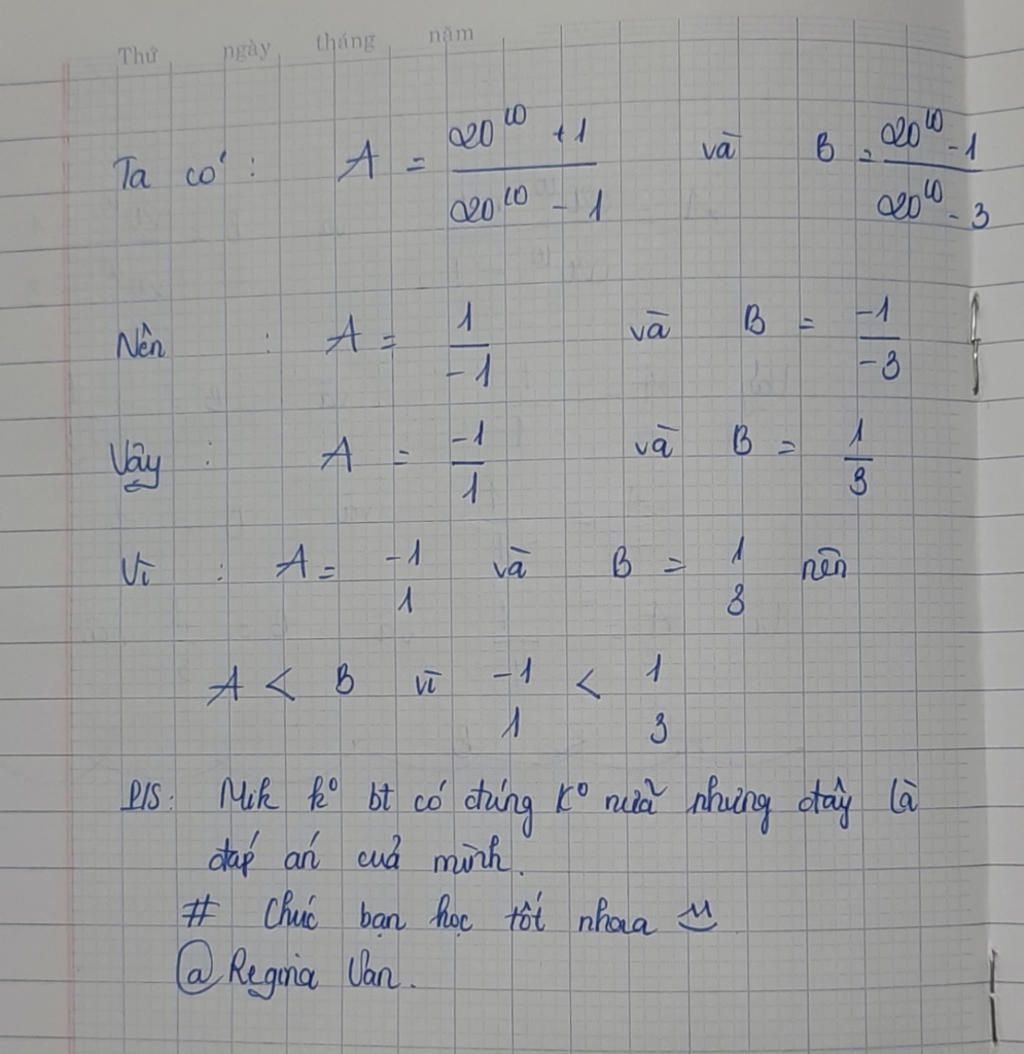 Thứ ngày tháng năm
Ta có : A = \frac{20^{10} + 1}{20^{10} - 1} và B = \frac{20^{10} - 1}{20^{10} - 3}
Nên : A = \frac{1}{-1} và B = \frac{-1}{-3}
Vậy : A = \frac{-1}{1} và B = \frac{1}{3}
Vì : A = \frac{-1}{1} và B = \frac{1}{3} nên
A < B vì \frac{-1}{1} < \frac{1}{3}
P/S: Mik k° bt có đúng k° nữa nhưng đây là
đáp án của mình.
# Chúc bạn học tốt nhaaa
@Regina Van.